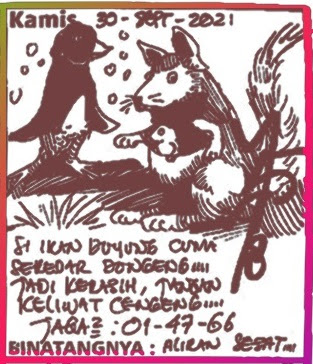 Kamis 30 - SEPT - 2021
SI IKAN DUYUNG CUMA
SEKEDAR DONGENG....
JADI KEKASIH, JANGAN
KELIWAT CENGENG....
JAGA2 : 01-47-66
BINATANGNYA : ALIRAN SESAT...